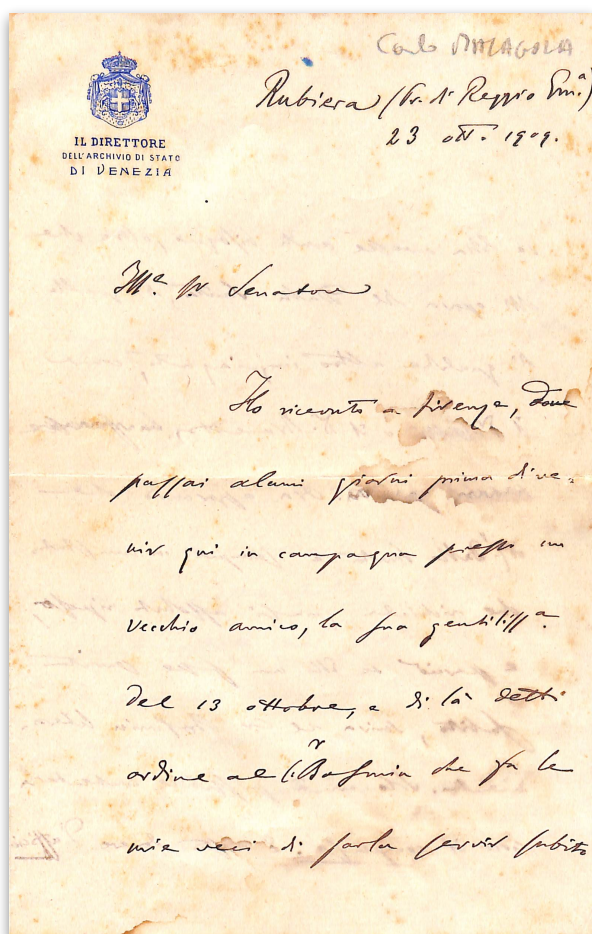 Carlo MALAGOLA
IL DIRETTORE
DELL'ARCHIVIO DI STATO
DI VENEZIA
Rubiera (Pr. di Reggio Em.ª)
23 ott. 1909.
Ill.º Sr. Senatore
Ho ricevuto a Firenze, dove
passai alcuni giorni prima di ve-
nir qui in campagna presso un
vecchio amico, la sua gentiliss.ª
del 13 ottobre, e di là detti
ordine al che fa le
mie veci di farla servir subito